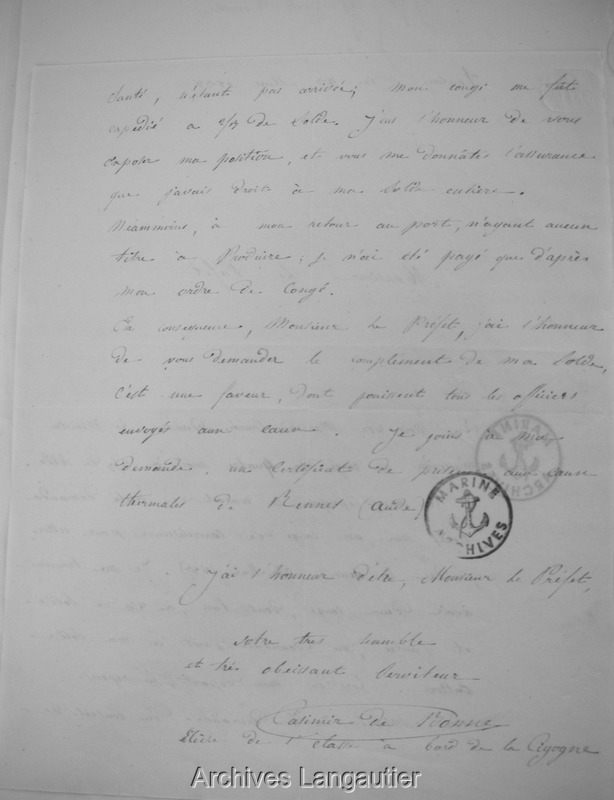 santé, n'étant pas arrivée; mon congé me fut
expédié a 2/3 de solde. J'eus l'honneur de vous
exposer ma position, et vous me donnâtes l'assurance
que j'avais droit à ma solde entière.
Néammoins, à mon retour au port, n'ayant aucun
titre à Produire; je n'ai été payé que d'après
mon ordre de Congé.
En conséquence, Monsieur le Préfet, j'ai l'honneur
de vous demander le complément de ma solde,
c'est une faveur, dont jouissent tous les officiers
envoyés aux eaux. Je joins à ma
demande, un certificat de aux eaux
thermales de Rennes (aude)
MARINE
ARCHIVES
MARINE
ARCHIVES
J'ai l'honneur d'être, Monsieur le Préfet,
votre très humble
et très obéissant serviteur
Casimir de
Elève de 1e classe à bord de la Cigogne
Archives Langautier